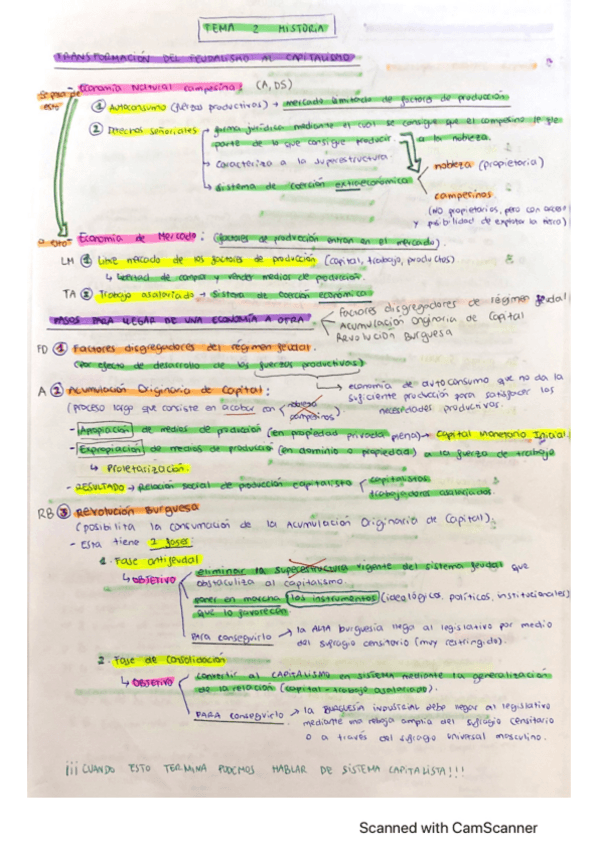 TEMA 2 HISTORIA
TRANSFORMACIÓN DEL FEUDALISMO AL CAPITALISMO
Se pasa de esto
- Economía Natural campesina: (A, DS)
① Autoconsumo (fuerzas productivas) → mercado limitado de factores de producción
② Derechos señoriales
forma jurídica mediante el cual se consigue que el campesino le dé parte de lo que consigue producir a la nobleza.
→ Caracteriza a la superestructura.
→ Sistema de coerción extraeconómica
nobleza (propietaria)
campesinos
(NO propietarios, pero con acceso y posibilidad de explotar la tierra)
a esto
- Economía de Mercado: (factores de producción entran en el mercado).
LM ① Libre mercado de los factores de producción (capital, trabajo, productos)
↳ libertad de compra y venta medios de producción
TA ② Trabajo asalariado → Sistema de coerción económica
PASOS PARA LLEGAR DE UNA ECONOMÍA A OTRA
Factores disgregadores de régimen feudal
Acumulación Originaria de Capital
Revolución Burguesa
FD ① Factores disgregadores del régimen feudal.
(por efecto de desarrollo de las fuerzas productivas)
→ economía de autoconsumo que no da la suficiente producción para satisfacer las necesidades productivas.
A ② Acumulación Originaria de Capital:
(proceso largo que consiste en acabar con
nobleza
campesinos)
- Apropiación de medios de producción (en propiedad privada plena) → Capital Monetario Inicial.
- Expropiación de medios de producción (en dominio o propiedad) a la fuerza de trabajo
↳ Proletarización.
- RESULTADO → Relación social de producción capitalista
capitalistas
trabajadores asalariados.
RB ③ Revolución Burguesa
(posibilita la consumación de la Acumulación Originaria de Capital).
- Esta tiene 2 fases:
1. Fase antifeudal
↳ OBJETIVO
eliminar la superestructura vigente del sistema feudal que obstaculiza al capitalismo.
poner en marcha los instrumentos (ideológicos, políticos, institucionales) que lo favorezcan
PARA conseguirlo → la ALTA burguesía llega al legislativo por medio del sufragio censitario (muy restringido).
2. Fase de consolidación
↳ OBJETIVO
convertir al CAPITALISMO en SISTEMA mediante la generalización de la relación (capital - trabajo asalariado).
PARA conseguirlo → la BURGUESÍA INDUSTRIAL debe llegar al legislativo mediante una rebaja amplia del sufragio censitario o a través del sufragio universal masculino.
¡¡¡ CUANDO ESTO TERMINA PODEMOS HABLAR DE SISTEMA CAPITALISTA!!!
Scanned with CamScanner